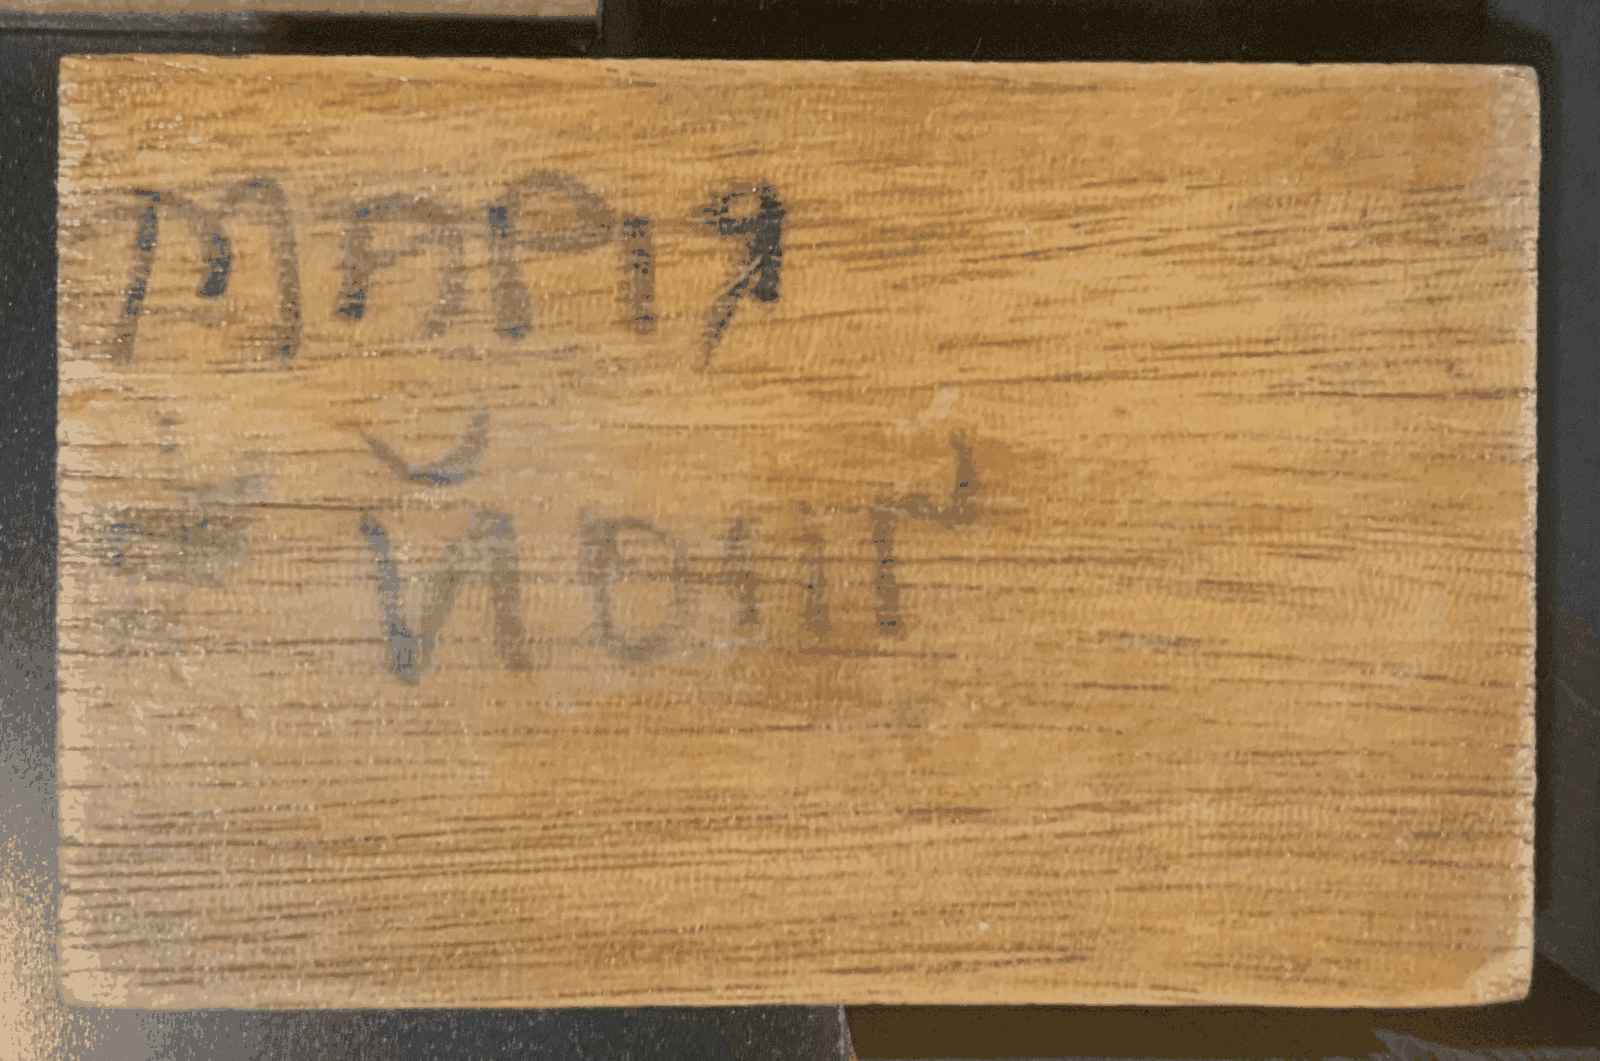 МАРІЯ
ЙОНҐ